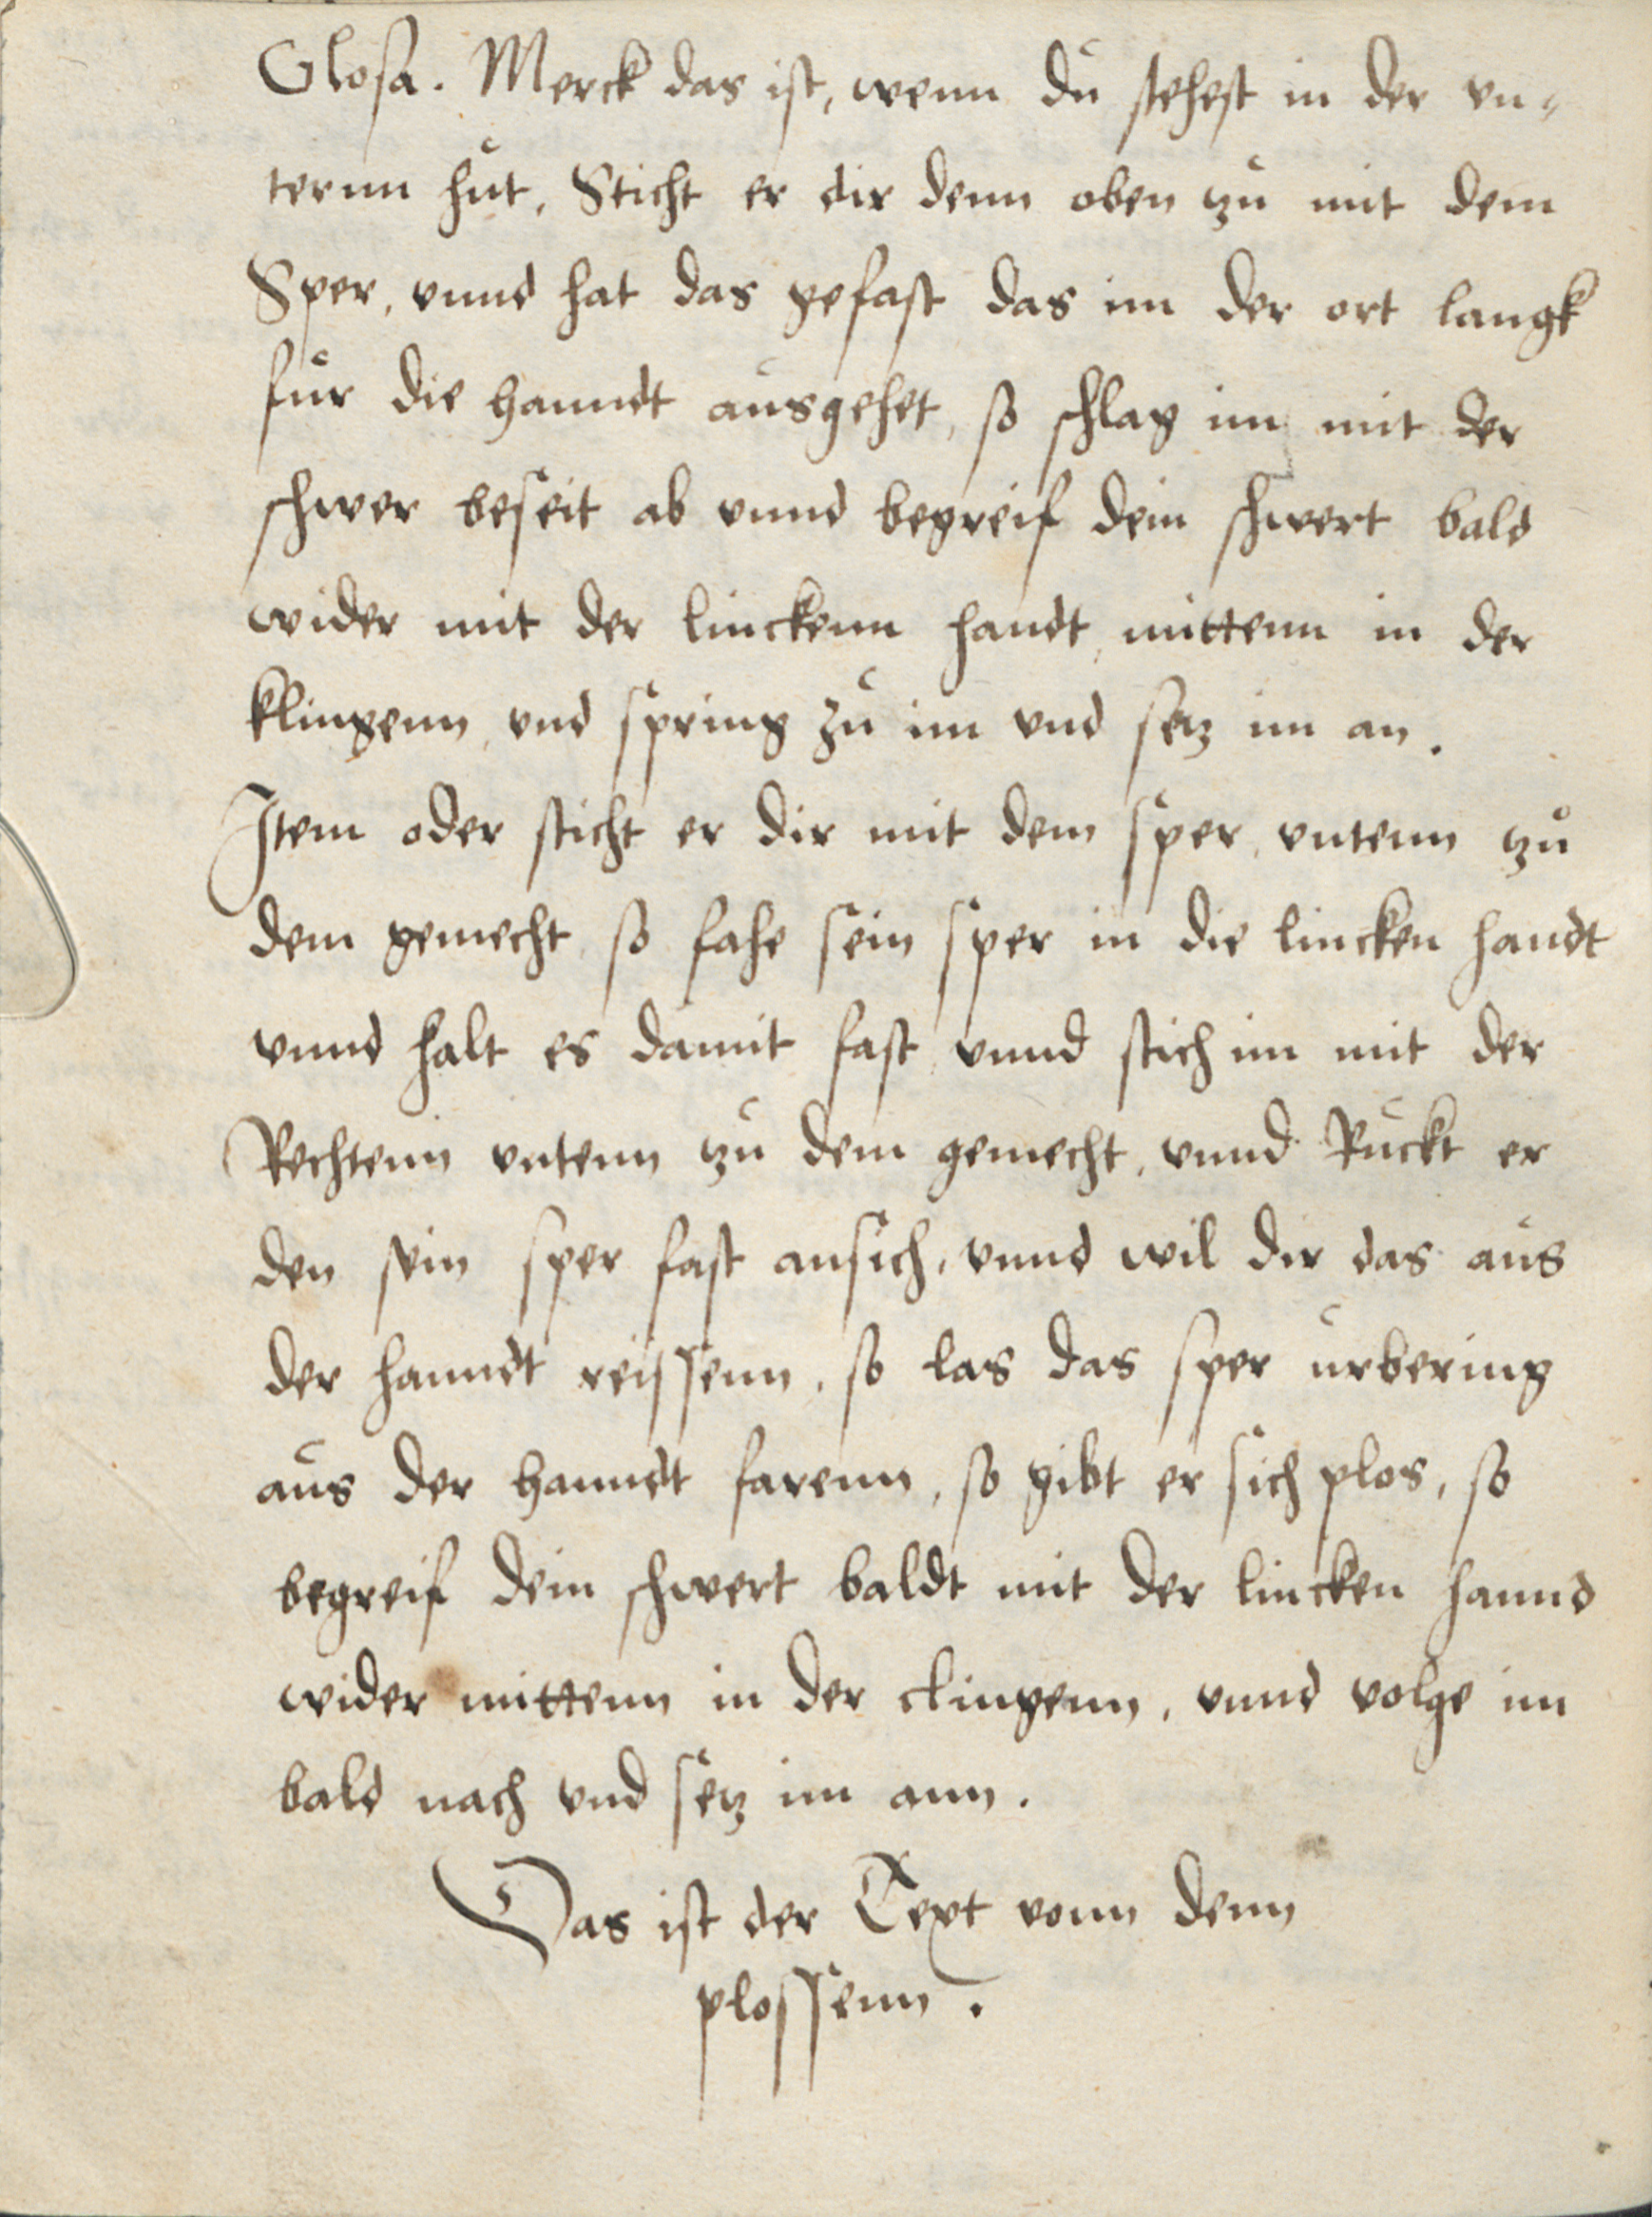 Glosa. Merck das ist, wenn du stehest in der vn-
ternn hut, Sticht er dir denn oben zu mit dem
Sper, vnnd hat das gefast das im der ort langk
fur die hanndt ausgehet, so schlag im mit der
schwer beseit ab vnnd begreif dein schwert bald
wider mit der linckenn handt, mittenn in der
klingenn, vnd spring zu im vnd setz im an.
Item oder sticht er dir mit dem sper, vntenn zu
dem gemecht, so fahe sein sper in die lincken handt
vnnd halt es damit fast, vnnd stich im mit der
Rechtenn vntenn zu dem gemecht, vnnd Ruckt er
den sein sper fast ansich, vnnd wil dir das aus
der hanndt reissenn, so las das sper urbering
aus der hanndt farenn, so gibt er sich plos, so
begreif dein schwert baldt mit der lincken hannd
wider mittenn in der clingenn, vnnd volge im
bald nach vnd setz im ann.
Das ist der Text vonn denn
plossenn.